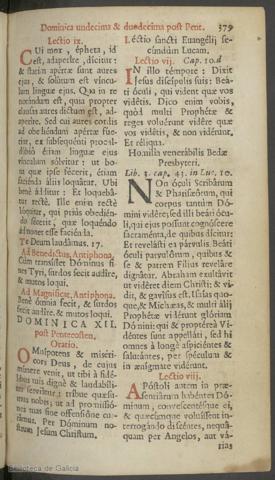 Dominica undecima & duodecima post Pent. 379
Lectio ix.
CUi mox, épheta, id
est, adaperíre, dícitur:
& statim apértæ sunt aures
ejus, & solútum est víncu-
lum linguæ ejus. Quia in re
notándum est, quia propter
clausas aures dictum est, ad-
aperíre. Sed cui aures cordis
ad obediéndum apértæ fúe-
rint, ex subsequénti procul-
dúbio étiam linguæ ejus
vínculum sólvitur: ut bo-
na quæ ipse fécerit, étiam
faciénda áliis loquátur. Ubi
bene ádditur: Et loquebá-
tur rectè. Ille enim rectè
lóquitur, qui priùs obedién-
do fécerit, quæ loquéndo
ádmonet esse faciénda.
Te Deum laudámus. 17.
Ad Benedictus, Antiphona.
Cùm transísset Dóminus fi-
nes Tyri, surdos fecit audíre,
& mutos loqui.
Ad Magnificat, Antiphona.
Benè ómnia fecit, & surdos
fecit audíre, & mutos loqui.
DOMINICA XII.
post Pentecosten.
Oratio.
OMnípotens & miséri-
cors Deus, de cujus
múnere venit, ut tibi à fidé-
libus tuis dignè & laudabíli-
ter serviátur: tríbue quæsu-
mus nobis; ut ad promissió-
nes tuas sine offensióne cur-
rámus. Per Dóminum no-
strum Jesum Christum.
Léctio sancti Evangélij se-
cúndùm Lucam.
Lectio vij. Cap. 10. d
IN illo témpore: Dixit
Jesus discípulis suis: Beá-
ti óculi, qui vident quæ vos
vidétis. Dico enim vobis,
quòd multi Prophétæ &
reges voluérunt vidére quæ
vos vidétis, & non vidérunt.
Et réliqua.
Homilia venerábilis Bedæ
Presbyteri.
Lib. 3. cap. 43. in Luc. 10.
NOn óculi Scribárum
& Pharisæórum, qui
corpus tantùm Dó-
mini vidére; sed illi beáti ócu-
li, qui ejus possunt cognóscere
sacraménta, de quibus dícitur:
Et revelásti ea párvulis. Beáti
óculi parvulórum, quibus &
se & patrem Fílius reveláre
dignátur. Abraham exultávit
ut vidéret diem Christi; & vi-
dit, & gavísus est. Isaías quo-
que, & Michæas, & multi álij
Prophétæ vidérunt glóriam
Dómini: qui & proptéreà Vi-
déntes sunt appelláti, sed hi
omnes à longè aspiciéntes &
salutántes, per spéculum &
in ænígmate vidérunt.
Lectio viij.
APóstoli autem in præ-
sentiárum habéntes Dó-
minum, convescentésque ei,
& quæcúmque voluíssent in-
terrogándo discéntes, nequá-
quam per Angelos, aut vá-
rias
Biblioteca de Galicia